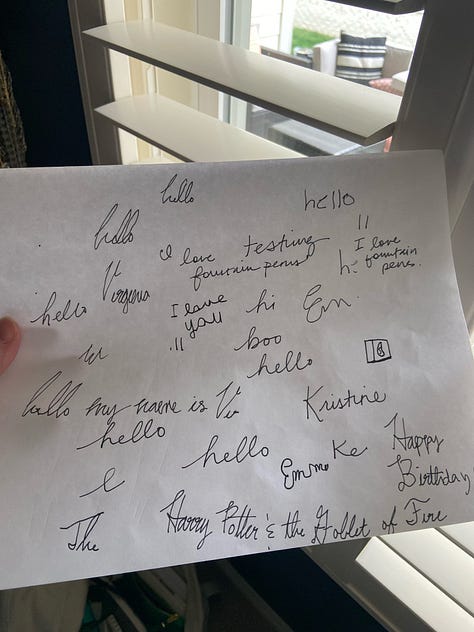 hello
hello
hello
I love testing
fountain pens!
"
I love
fountain
pens.
h.
Virginia
hello
I love
you
hi Em.
boo
hello
B
hello my name is Vi
Kristine
hello
hello
Ke
Emma
Happy
Birthday
The
Harry Potter & the Goblet of Fire